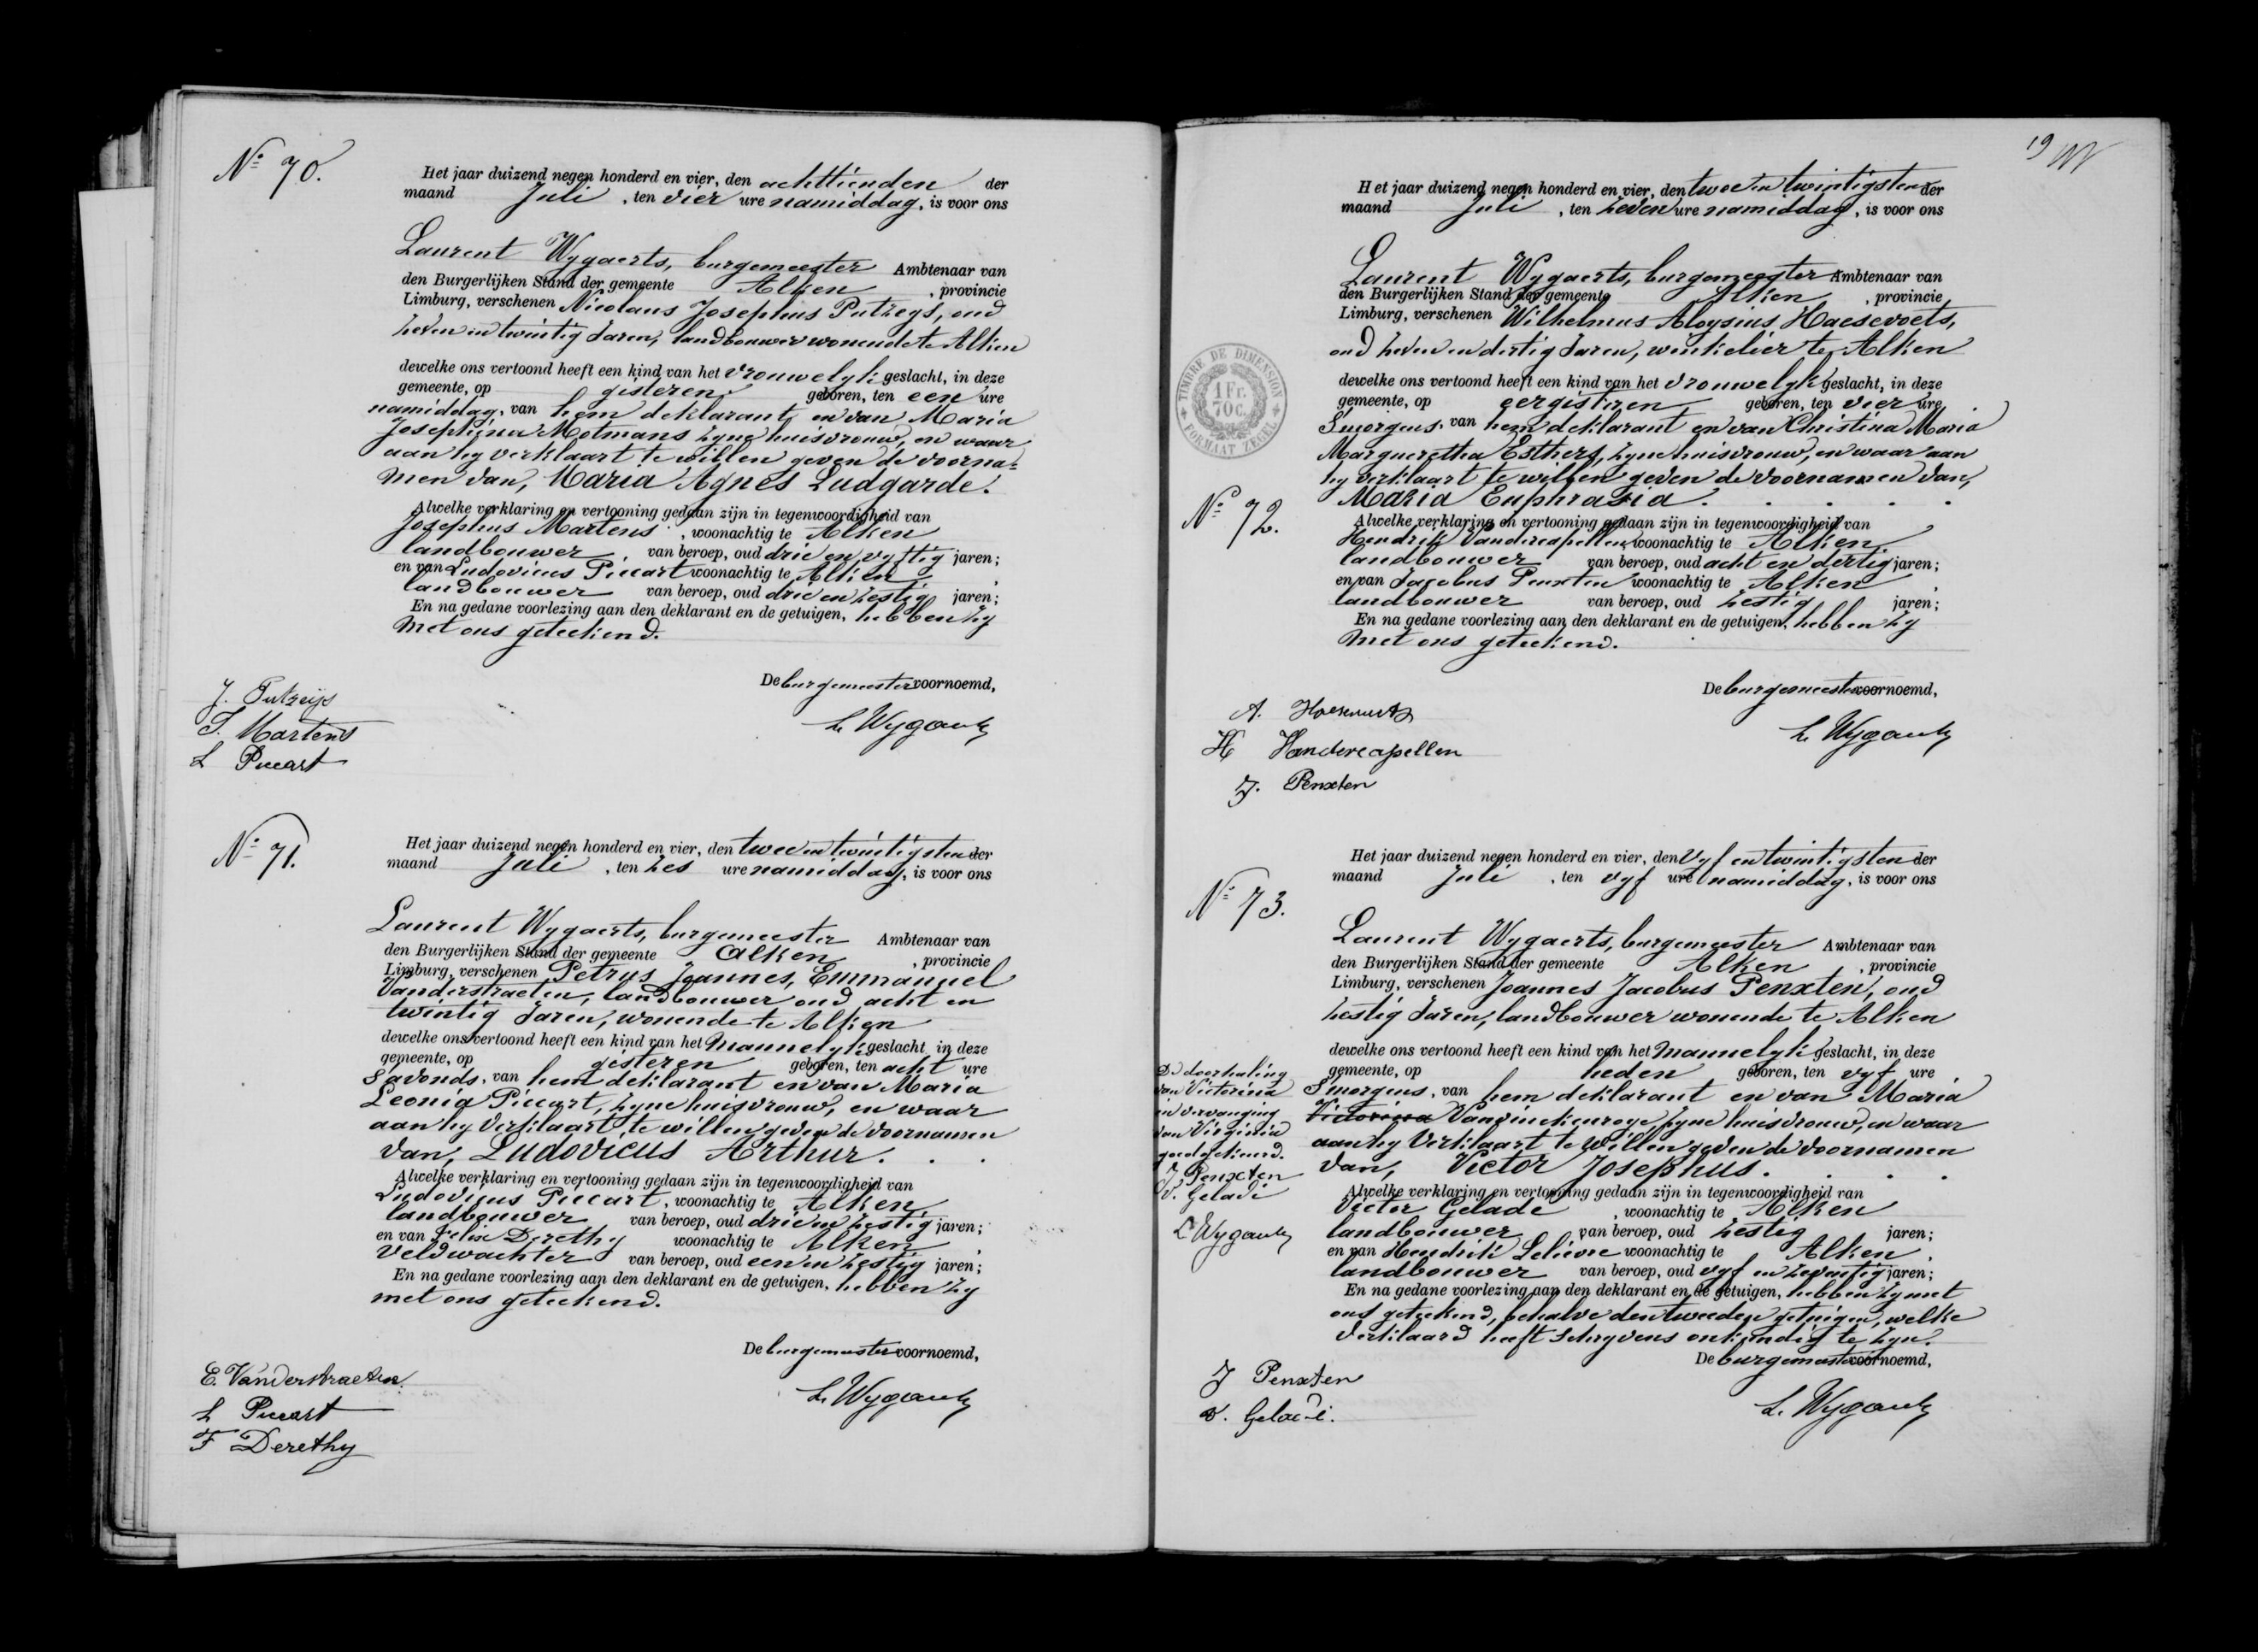 Nº 70.
Het jaar duizend negen honderd en vier, den achttienden der
maand Juli, ten vier ure namiddag, is voor ons
Laurent Wygaerts, burgemeester Ambtenaar van
den Burgerlijken Stand der gemeente Alken, provincie
Limburg, verschenen Nicolaus Josephus Putzeys, oud
zeven en twintig Jaren, landbouwer wonende te Alken
dewelke ons vertoond heeft een kind van het vrouwelyk geslacht, in deze
gemeente, op gisteren geboren, ten een ure
namiddag, van hem deklarant, en van Maria
Josephina Motmans zyne huisvrouw, en waar
aan hy verklaart te willen geven de voorna=
men van, Maria Agnes Ludgarde.
Alwelke verklaring en vertooning gedaan zijn in tegenwoordigheid van
Josephus Martens, woonachtig te Alken
landbouwer, van beroep, oud drie en vyftig jaren;
en van Ludovicus Piccart woonachtig te Alken,
landbouwer van beroep, oud drie en zestig jaren;
En na gedane voorlezing aan den deklarant en de getuigen, hebben zy
met ons geteekend.
De burgemeester voornoemd,
J. Putzeijs
J. Martens
L Piccart
L. Wygaerts
Nº 71.
Het jaar duizend negen honderd en vier, den twee en twintigsten der
maand Juli, ten zes ure namiddag, is voor ons
Laurent Wygaerts, burgemeester Ambtenaar van
den Burgerlijken Stand der gemeente Alken, provincie
Limburg, verschenen Petrus Joannes, Emmanuel
Vanderstraeten, landbouwer oud acht en
twintig Jaren, wonende te Alken
dewelke ons vertoond heeft een kind van het mannelyk geslacht, in deze
gemeente, op gisteren geboren, ten acht ure
S'avonds, van hem deklarant en van Maria
Leonia Piccart, zyne huisvrouw, en waar
aan hy verklaart te willen geven de voornamen
van, Ludovicus Arthur. . .
Alwelke verklaring en vertooning gedaan zijn in tegenwoordigheid van
Ludovicus Piccart, woonachtig te Alken,
landbouwer van beroep, oud drie en zestig jaren;
en van Felix Derethy woonachtig te Alken,
veldwachter van beroep, oud een en zestig jaren;
En na gedane voorlezing aan den deklarant en de getuigen, hebben zy
met ons geteekend.
De burgemeester voornoemd,
E. Vanderstraeten.
L Piccart
F Derethy
L. Wygaerts
19
TIMBRE DE DIMENSION
1 Fr. 70 c.
FORMAAT ZEGEL
Nº 72.
Het jaar duizend negen honderd en vier, den twee en twintigsten der
maand Juli, ten zeven ure namiddag, is voor ons
Laurent Wygaerts, burgemeester Ambtenaar van
den Burgerlijken Stand der gemeente Alken, provincie
Limburg, verschenen Wilhelmus Aloysius Haesevoets,
oud zeven en dertig Jaren, winkelier te Alken
dewelke ons vertoond heeft een kind van het vrouwelyk geslacht, in deze
gemeente, op eergisteren geboren, ten vier ure
S'morgens, van hem deklarant en van Christina Maria
Margueretha Esthers, zyne huisvrouw, en waar aan
hy verklaart te willen geven de voornamen van,
Maria Euphrasia. . . . .
Alwelke verklaring en vertooning gedaan zijn in tegenwoordigheid van
Hendrik Vandercapellen woonachtig te Alken,
landbouwer van beroep, oud acht en dertig jaren;
en van Jacobus Penxten woonachtig te Alken,
landbouwer van beroep, oud zestig jaren;
En na gedane voorlezing aan den deklarant en de getuigen, hebben zy
met ons geteekend.
De burgemeester voornoemd,
A. Haesevoets
H Vandercapellen
J. Penxten
L. Wygaerts
Nº 73.
Het jaar duizend negen honderd en vier, den vyf en twintigsten der
maand Juli, ten vyf ure namiddag, is voor ons
Laurent Wygaerts, burgemeester Ambtenaar van
den Burgerlijken Stand der gemeente Alken, provincie
Limburg, verschenen Joannes Jacobus Penxten, oud
zestig Jaren, landbouwer wonende te Alken
dewelke ons vertoond heeft een kind van het mannelyk geslacht, in deze
gemeente, op heden geboren, ten vyf ure
S'morgens, van hem deklarant en van Maria
Victorina Vanvinckenroye zyne huisvrouw, en waar
aan hy verklaart te willen geven de voornamen
van, Victor Josephus. . . .
Alwelke verklaring en vertooning gedaan zijn in tegenwoordigheid van
Victor Gelade, woonachtig te Alken
landbouwer van beroep, oud zestig jaren;
en van Hendrik Lelievre woonachtig te Alken,
landbouwer van beroep, oud vyf en zeventig jaren;
En na gedane voorlezing aan den deklarant en de getuigen, hebben zy met
ons geteekend, behalve den tweeden getuigen, welke
verklaard heeft schryvens onkundig te zyn.
De burgemeester voornoemd,
De doorhaling
van Victorina
en vervanging
van Virginia
goedgekeurd.
J Penxten
V. Geladé
L Wygaerts
J Penxten
V. Geladé.
L. Wygaerts